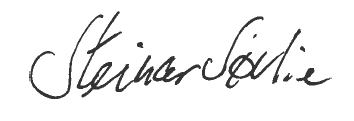 Steinar Sørlie